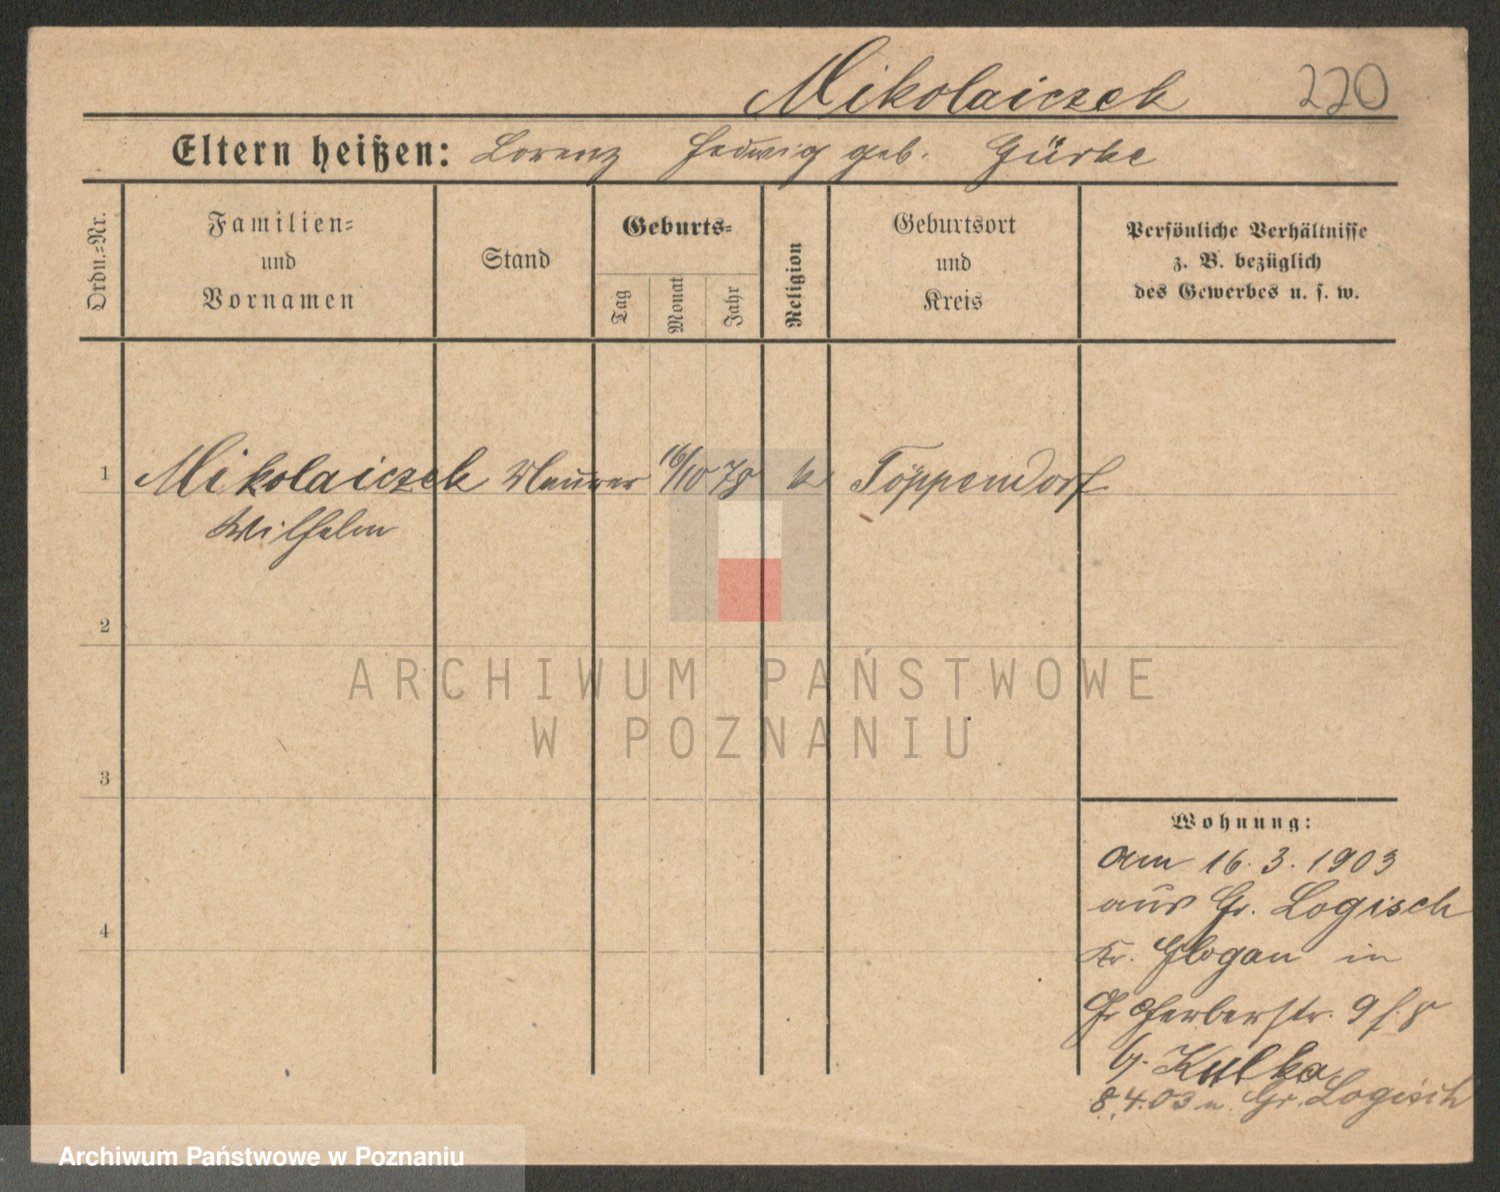 Mikolaiczek 220
Eltern heißen: Lorenz Hedwig geb. Gürke
Ordn.=Nr.
Familien=
und
Vornamen
Stand
Geburts=
Tag
Monat
Jahr
Religion
Geburtsort
und
Kreis
Persönliche Verhältnisse
z. B. bezüglich
des Gewerbes u. s. w.
1 Mikolaiczek Maurer 16/10 78 k Töppendorf
Wilhelm
2
3
4
Wohnung:
am 16.3.1903
aus Gr. Logisch
Kr. Glogau in
Gr Gerberstr. 9
b. Kulka
8.4.03 n. Gr. Logisch
ARCHIWUM PAŃSTWOWE
W POZNANIU
Archiwum Państwowe w Poznaniu